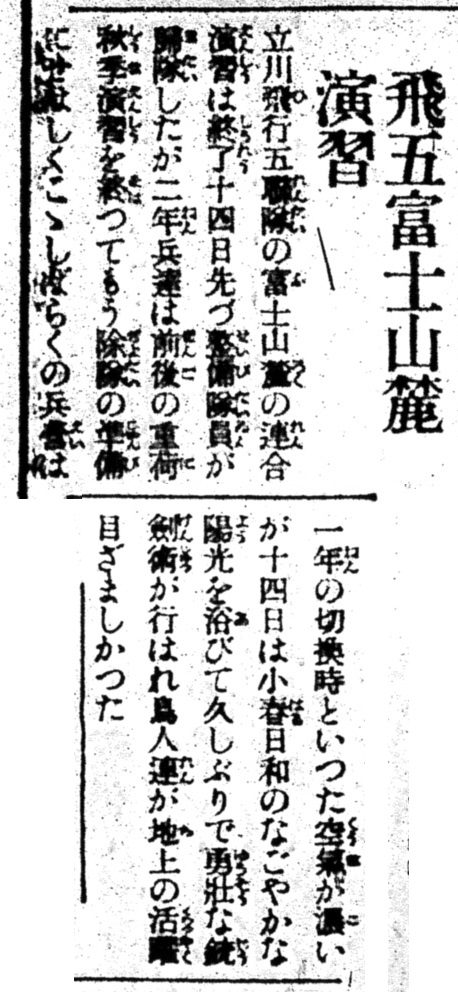 飛五富士山麓
演習
立川飛行五聯隊の富士山麓の連合
演習は終了十四日先づ整備隊員が
歸隊したが二年兵達は前後の重荷
秋季演習を終つてもう除隊の準備
にせはしくこゝしばらくの兵營は
一年の切換時といつた空氣が濃い
が十四日は小春日和のなごやかな
陽光を浴びて久しぶりで勇壯な銃
劍術が行はれ鳥人連が地上の活躍
目ざましかつた